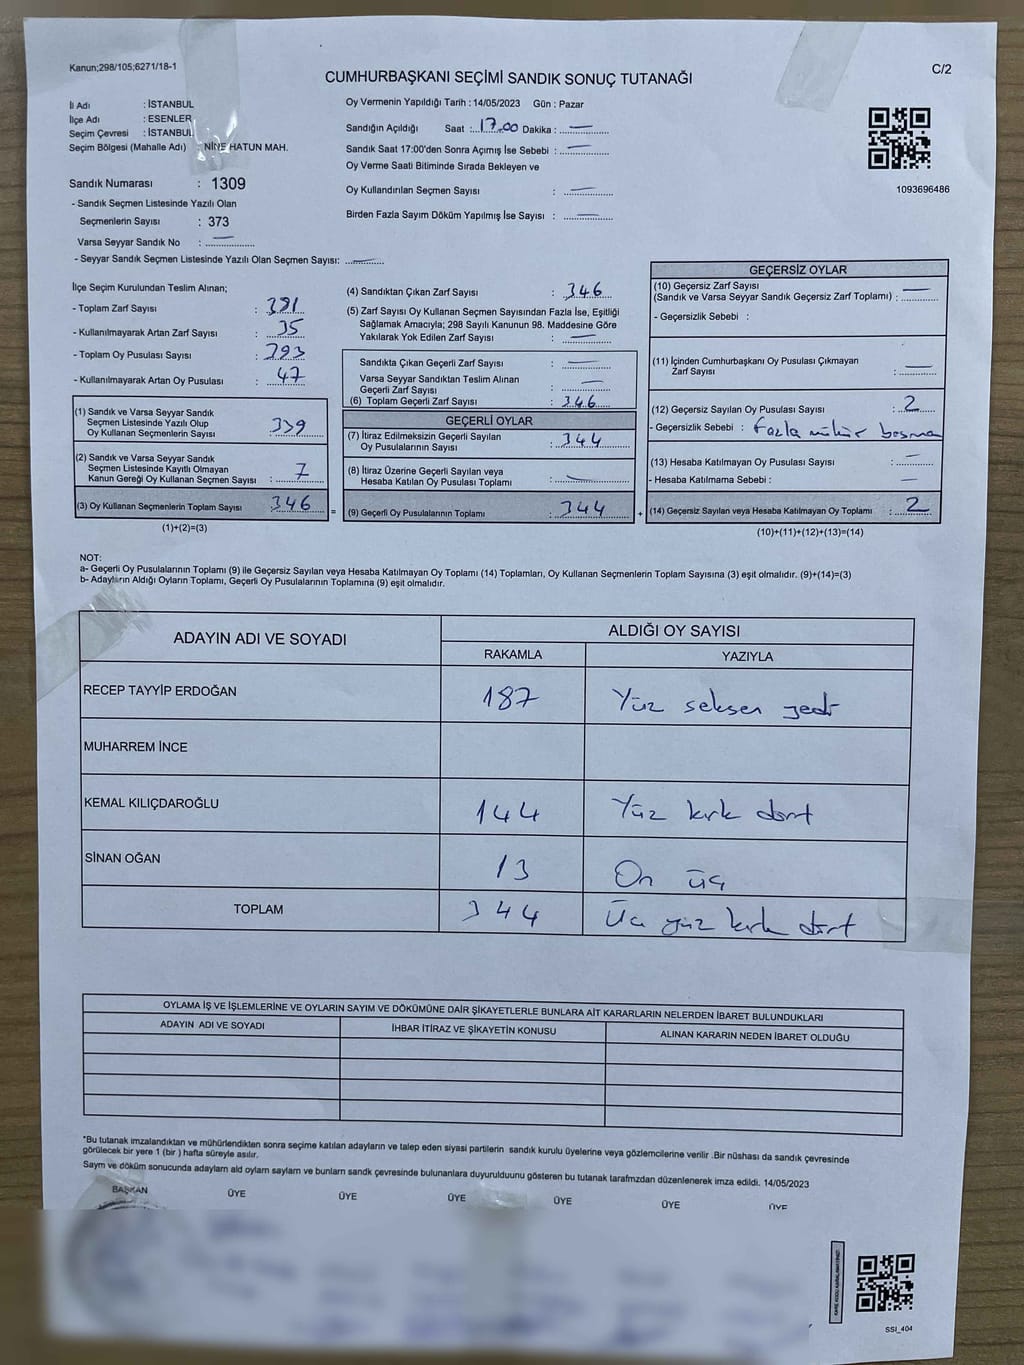 Kanun;298/105;6271/18-1
C/2
CUMHURBAŞKANI SEÇİMİ SANDIK SONUÇ TUTANAĞI
İl Adı : İSTANBUL
İlçe Adı : ESENLER
Seçim Çevresi : İSTANBUL
Seçim Bölgesi (Mahalle Adı) : NİNE HATUN MAH.
Sandık Numarası : 1309
- Sandık Seçmen Listesinde Yazılı Olan
Seçmenlerin Sayısı : 373
Varsa Seyyar Sandık No : —
- Seyyar Sandık Seçmen Listesinde Yazılı Olan Seçmen Sayısı: —
Oy Vermenin Yapıldığı Tarih : 14/05/2023 Gün : Pazar
Sandığın Açıldığı Saat : 17.00 Dakika : —
Sandık Saat 17:00'den Sonra Açımış İse Sebebi : —
Oy Verme Saati Bitiminde Sırada Bekleyen ve
Oy Kullandırılan Seçmen Sayısı : —
Birden Fazla Sayım Döküm Yapılmış İse Sayısı : —
1093696486
İlçe Seçim Kurulundan Teslim Alınan;
- Toplam Zarf Sayısı : 381
- Kullanılmayarak Artan Zarf Sayısı : 35
- Toplam Oy Pusulası Sayısı : 393
- Kullanılmayarak Artan Oy Pusulası : 47
(1) Sandık ve Varsa Seyyar Sandık
Seçmen Listesinde Yazılı Olup
Oy Kullanan Seçmenlerin Sayısı : 339
(2) Sandık ve Varsa Seyyar Sandık
Seçmen Listesinde Kayıtlı Olmayan
Kanun Gereği Oy Kullanan Seçmen Sayısı : 7
(3) Oy Kullanan Seçmenlerin Toplam Sayısı : 346 =
(1)+(2)=(3)
(4) Sandıktan Çıkan Zarf Sayısı : 346
(5) Zarf Sayısı Oy Kullanan Seçmen Sayısından Fazla İse, Eşitliği
Sağlamak Amacıyla; 298 Sayılı Kanunun 98. Maddesine Göre
Yakılarak Yok Edilen Zarf Sayısı : —
Sandıkta Çıkan Geçerli Zarf Sayısı : —
Varsa Seyyar Sandıktan Teslim Alınan
Geçerli Zarf Sayısı : —
(6) Toplam Geçerli Zarf Sayısı : 346
GEÇERLİ OYLAR
(7) İtiraz Edilmeksizin Geçerli Sayılan
Oy Pusulasının Sayısı : 344
(8) İtiraz Üzerine Geçerli Sayılan veya
Hesaba Katılan Oy Pusulası Toplamı : —
(9) Geçerli Oy Pusulalarının Toplamı : 344 +
GEÇERSİZ OYLAR
(10) Geçersiz Zarf Sayısı
(Sandık ve Varsa Seyyar Sandık Geçersiz Zarf Toplamı) : —
- Geçersizlik Sebebi :
(11) İçinden Cumhurbaşkanı Oy Pusulası Çıkmayan
Zarf Sayısı : —
(12) Geçersiz Sayılan Oy Pusulası Sayısı : 2
- Geçersizlik Sebebi : Fazla mühür basma
(13) Hesaba Katılmayan Oy Pusulası Sayısı : —
- Hesaba Katılmama Sebebi : —
(14) Geçersiz Sayılan veya Hesaba Katılmayan Oy Toplamı : 2
(10)+(11)+(12)+(13)=(14)
NOT:
a- Geçerli Oy Pusulalarının Toplamı (9) ile Geçersiz Sayılan veya Hesaba Katılmayan Oy Toplamı (14) Toplamları, Oy Kullanan Seçmenlerin Toplam Sayısına (3) eşit olmalıdır. (9)+(14)=(3)
b- Adayların Aldığı Oyların Toplamı, Geçerli Oy Pusulalarının Toplamına (9) eşit olmalıdır.
ADAYIN ADI VE SOYADI ALDIĞI OY SAYISI
RAKAMLA YAZIYLA
RECEP TAYYİP ERDOĞAN 187 Yüz seksen yedi
MUHARREM İNCE
KEMAL KILIÇDAROĞLU 144 Yüz kırk dört
SİNAN OĞAN 13 On üç
TOPLAM 344 Üç yüz kırk dört
OYLAMA İŞ VE İŞLEMLERİNE VE OYLARIN SAYIM VE DÖKÜMÜNE DAİR ŞİKAYETLERLE BUNLARA AİT KARARLARIN NELERDEN İBARET BULUNDUKLARI
ADAYIN ADI VE SOYADI İHBAR İTİRAZ VE ŞİKAYETİN KONUSU ALINAN KARARIN NEDEN İBARET OLDUĞU
*Bu tutanak imzalandıktan ve mühürlendikten sonra seçime katılan adayların ve talep eden siyasi partilerin sandık kurulu üyelerine veya gözlemcilerine verilir .Bir nüshası da sandık çevresinde
görülecek bir yere 1 (bir ) hafta süreyle asılır.
Sayım ve döküm sonucunda adayların ald oyların sayların ve bunların sandk çevresinde bulunanlara duyurulduunu gösteren bu tutanak tarafmzdan düzenlenerek imza edildi. 14/05/2023
BAŞKAN ÜYE ÜYE ÜYE ÜYE ÜYE ÜYE
SSI_404